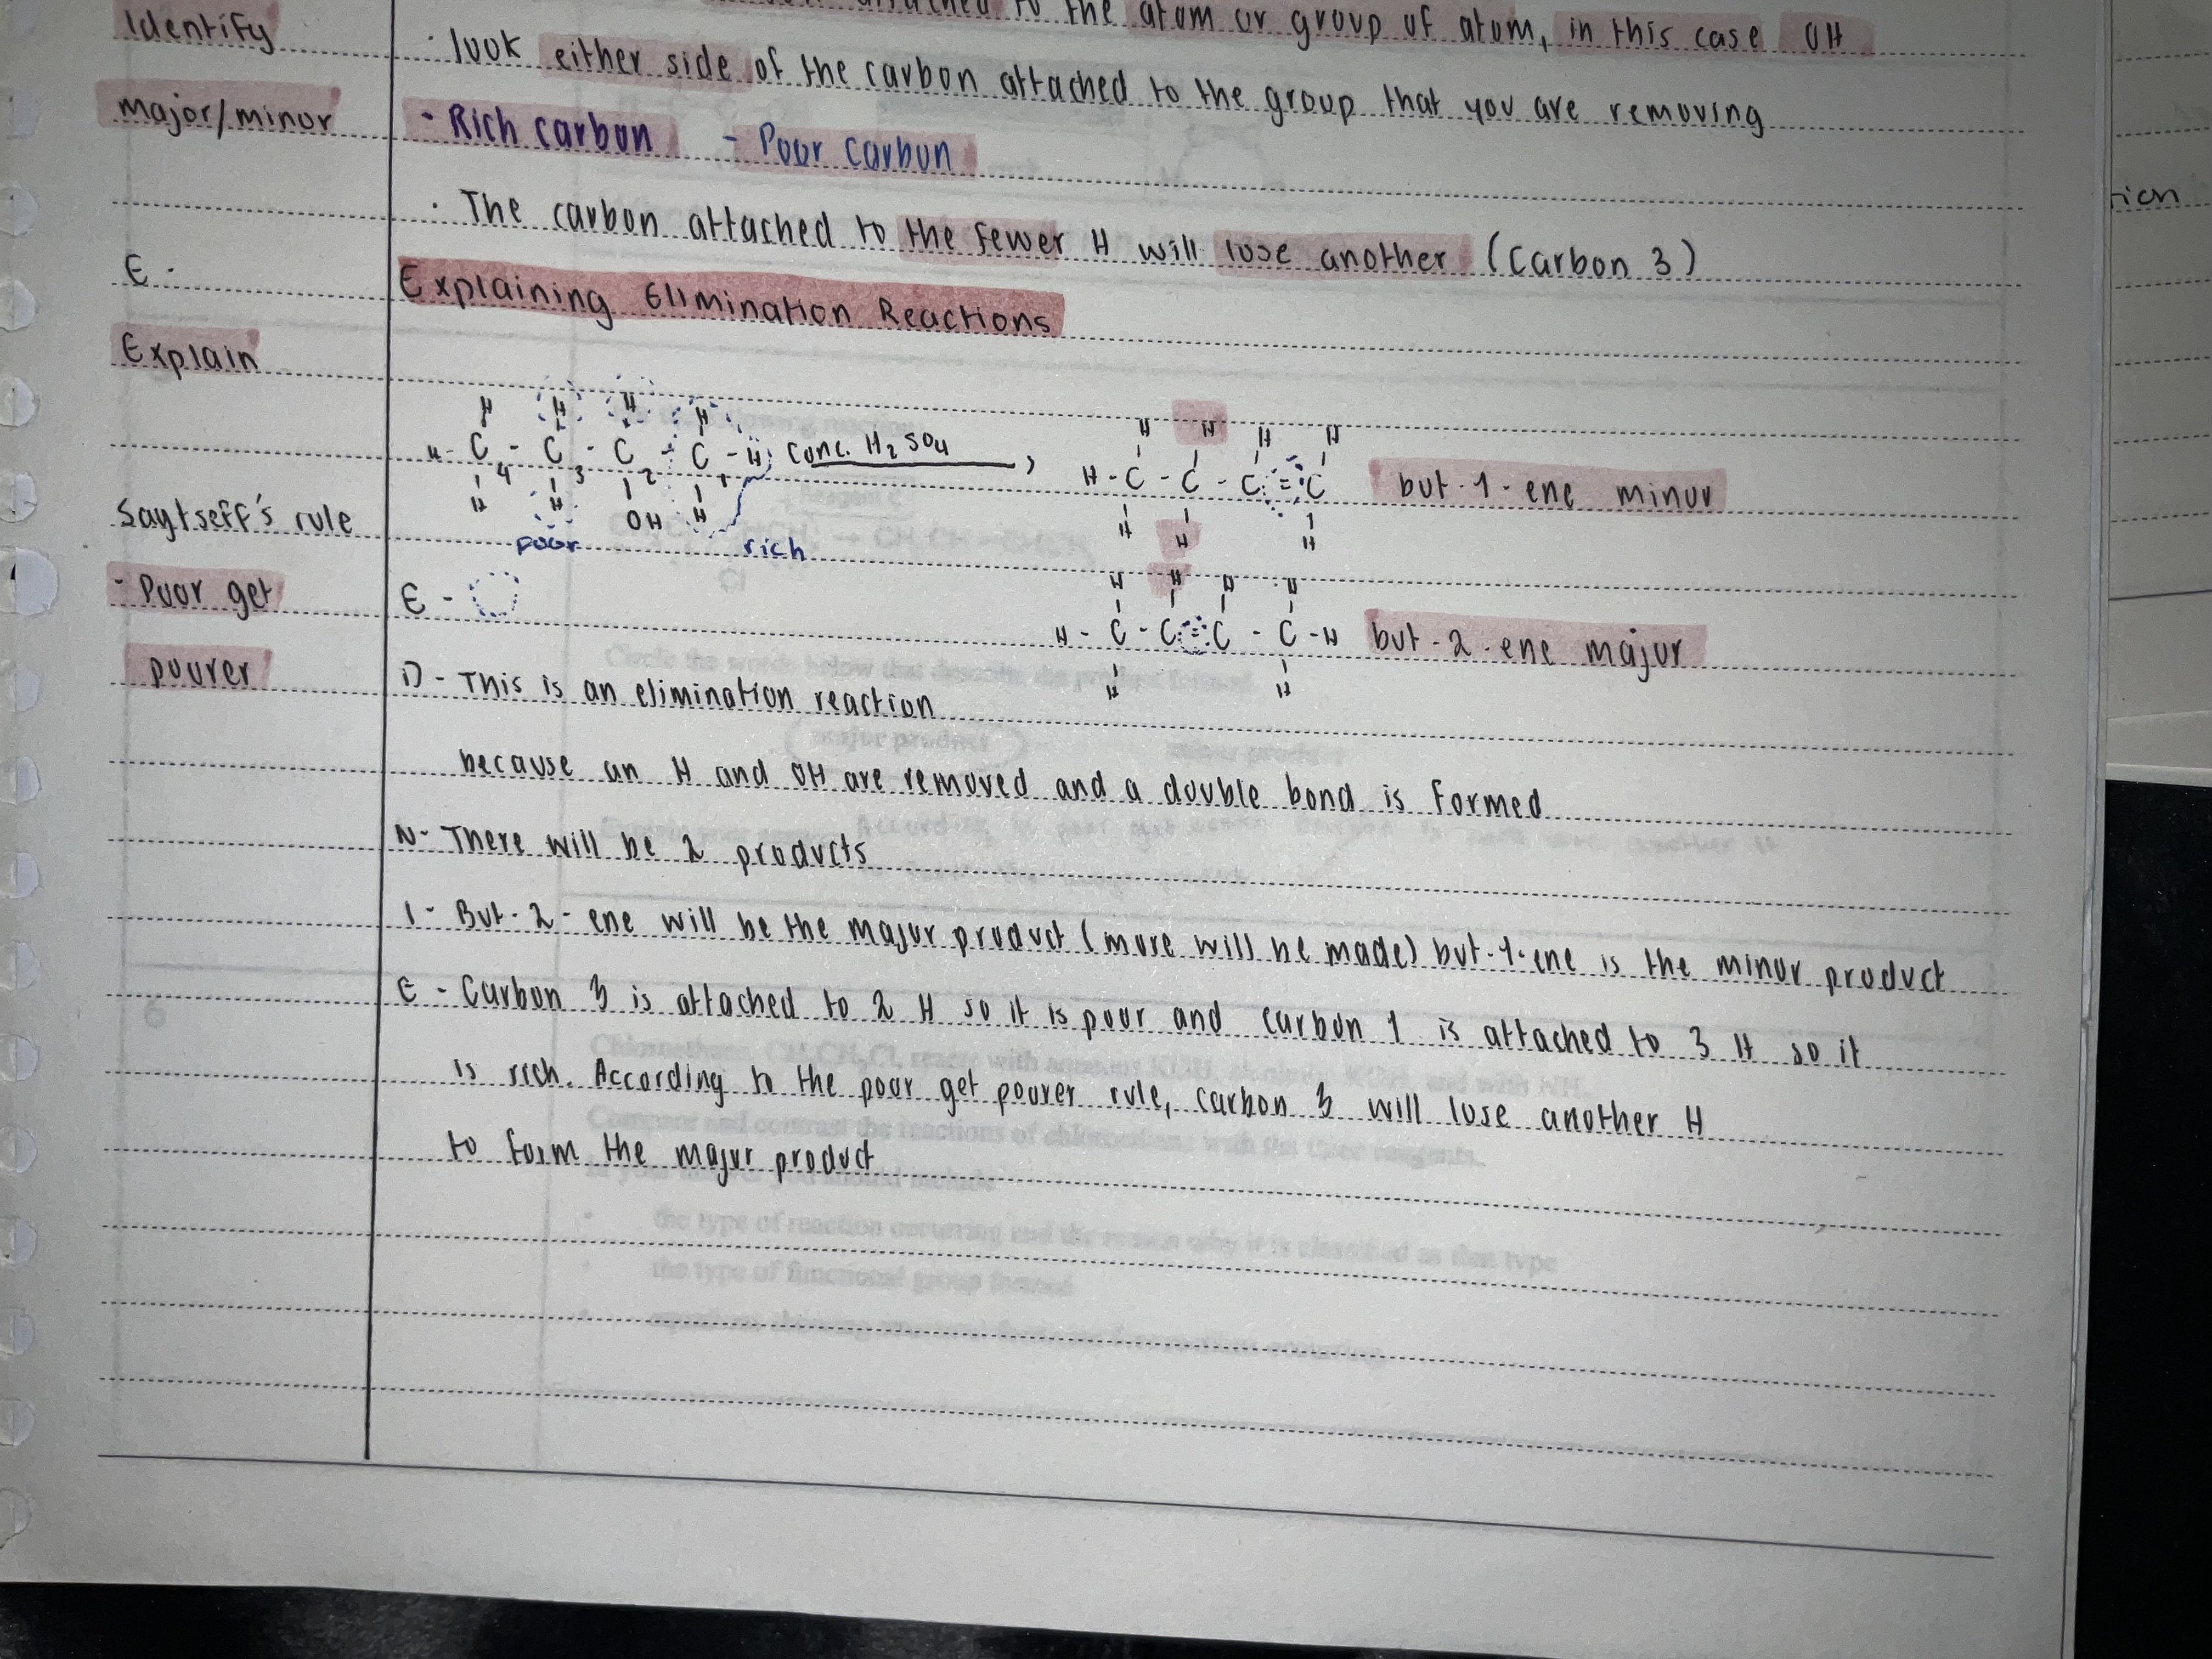 to the atom or group of atom, in this case OH
Identify
· look either side of the carbon attached to the group that you are removing
Major/minor
- Rich carbon - Poor carbon
· The carbon attached to the fewer H will lose another (Carbon 3)
E -
Explaining Elimination Reactions
Explain
H H H H
H - C - C - C - C - H conc. H2SO4
4 3 2 1
H H OH H
poor rich
H H H H
H - C - C - C = C but-1-ene minor
H H H
Saytseff's rule
- Poor get
pourer
E -
H H H H
H - C - C = C - C - H but-2-ene major
H H
D - This is an elimination reaction
because an H and OH are removed and a double bond is formed
N - There will be 2 products
I - But-2-ene will be the major product (more will be made) but-1-ene is the minor product
E - Carbon 3 is attached to 2 H so it is poor and carbon 1 is attached to 3 H so it
is rich. According to the poor get pourer rule, carbon 3 will lose another H
to form the major product